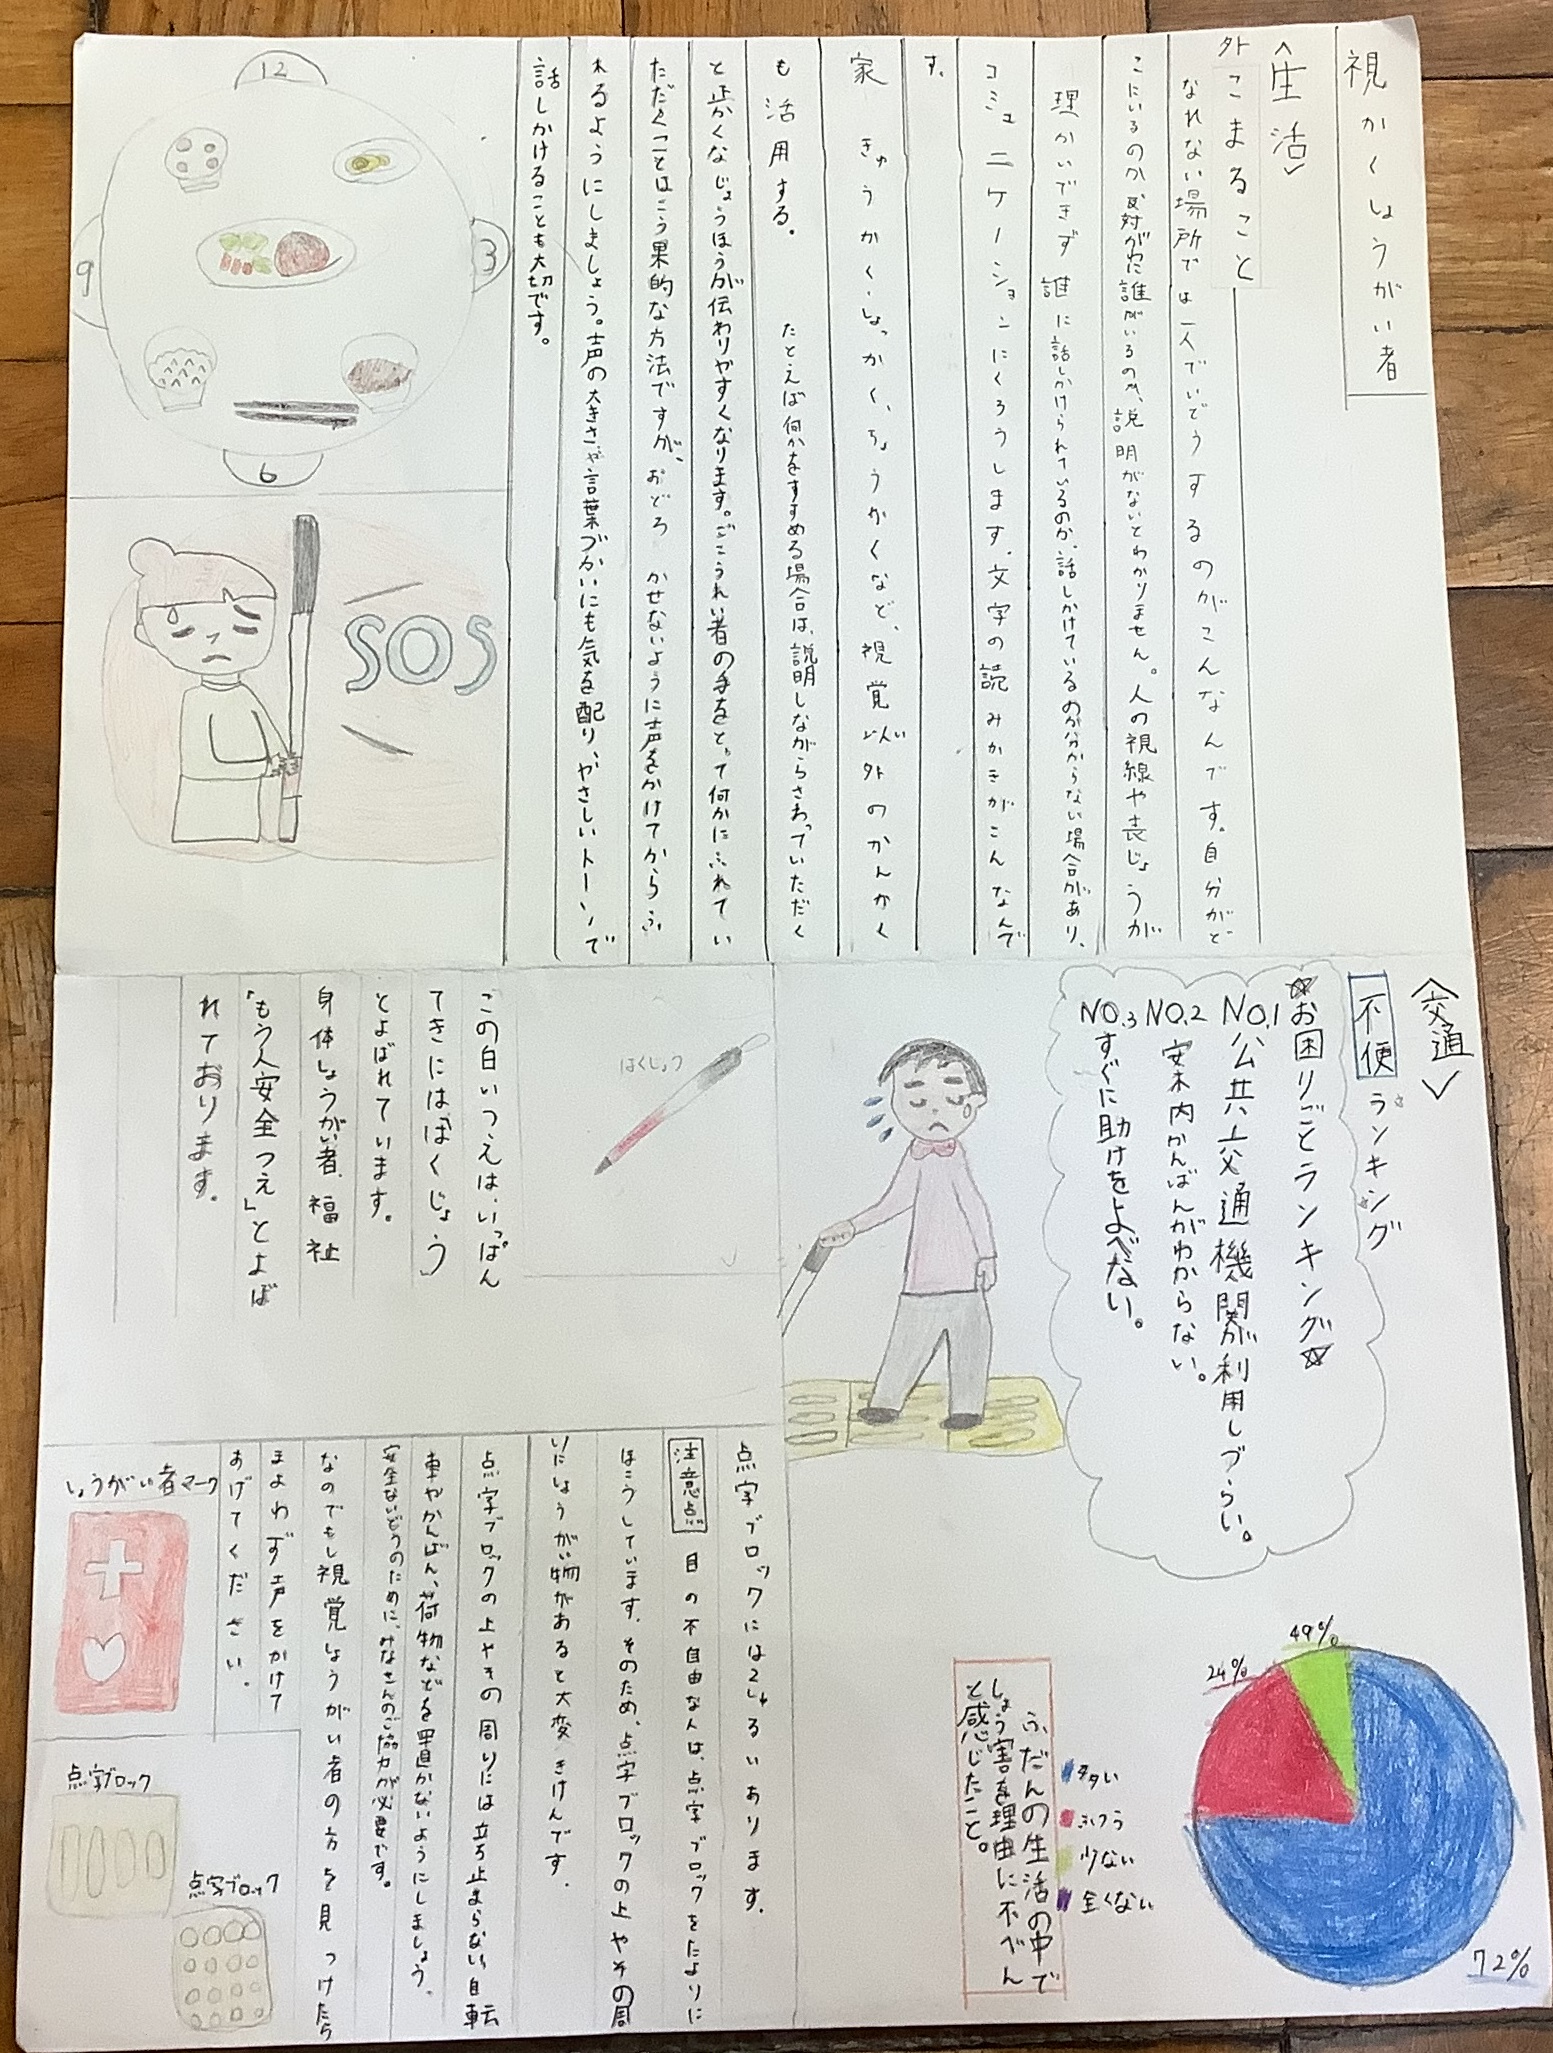 視かくしょうがい者
〈生活〉
外 こまること
なれない場所では一人でいどうするのがこんなんです。自分がど
こにいるのか反対がわに誰がいるのか、説明がないとわかりません。人の視線や表じょうが
理かいできず誰に話しかけられているのか、話しかけているのか分からない場合があり、
コミュニケーションにくろうします。文字の読みかきがこんなんで
す。
家 きゅうかく・しょっかく、ちょうかくなど、視覚以外のかんかく
も活用する。 たとえば何かをすすめる場合は、説明しながらさわっていただく
と正かくなじょうほうが伝わりやすくなります。ごこうれい者の手をとって何かにふれてい
ただくことはこう果的な方法ですが、おどろかせないように声をかけてからふ
れるようにしましょう。声の大きさや言葉づかいにも気を配り、やさしいトーンで
話しかけることも大切です。
12
3
6
9
SOS
〈交通〉
不便ランキング
☆お困りごとランキング☆
NO.1 公共交通機関が利用しづらい。
NO.2 案内かんばんがわからない。
NO.3 すぐに助けをよべない。
はくじょう
この白いつえは、いっぱん
てきには「はくじょう」
とよばれています。
身体しょうがい者、福祉
「もう人安全つえ」とよば
れております。
49%
24%
72%
多い
ふつう
少ない
全くない
ふだんの生活の中で
しょう害を理由に不べん
と感じたこと。
点字ブロックには2しゅるいあります。
注意点 目の不自由な人は、点字ブロックをたよりに
ほこうしています。そのため、点字ブロックの上やその周
りにしょうがい物があると大変きけんです。
点字ブロックの上やその周りには立ち止まらない、自転
車やかんばん、荷物などを置かないようにしましょう。
安全ないどうのために、みなさんのご協力が必要です。
なのでもし視覚しょうがい者の方を見つけたら
まよわず声をかけて
あげてください。
しょうがい者マーク
点字ブロック
点字ブロック